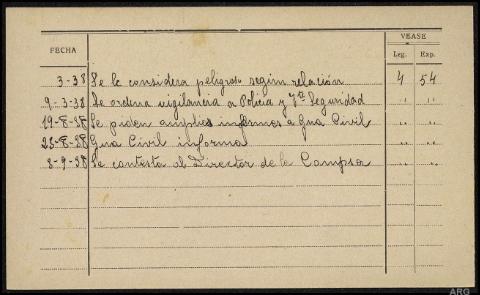 FECHA VEASE
Leg. Exp.
3-38 Se le considera peligroso según relación 4 54
9-3-38 Se ordena vigilancia a Policía y Jª Seguridad " "
19-8-38 Se piden amplios informes a Gua Civil " "
23-8-38 Gua Civil informa " "
8-9-38 Se contesta al Director de la Campsa " "
ARG